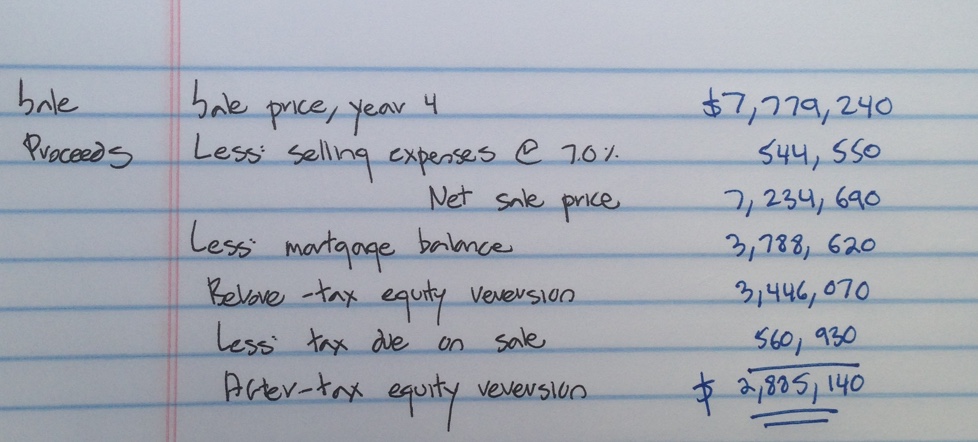 Sale Sale price, year 4 $7,779,240
Proceeds Less: selling expenses @ 7.0% 544,550
Net sale price 7,234,690
Less: mortgage balance 3,788,620
Before-tax equity reversion 3,446,070
Less: tax due on sale 560,930
After-tax equity reversion $ 2,885,140